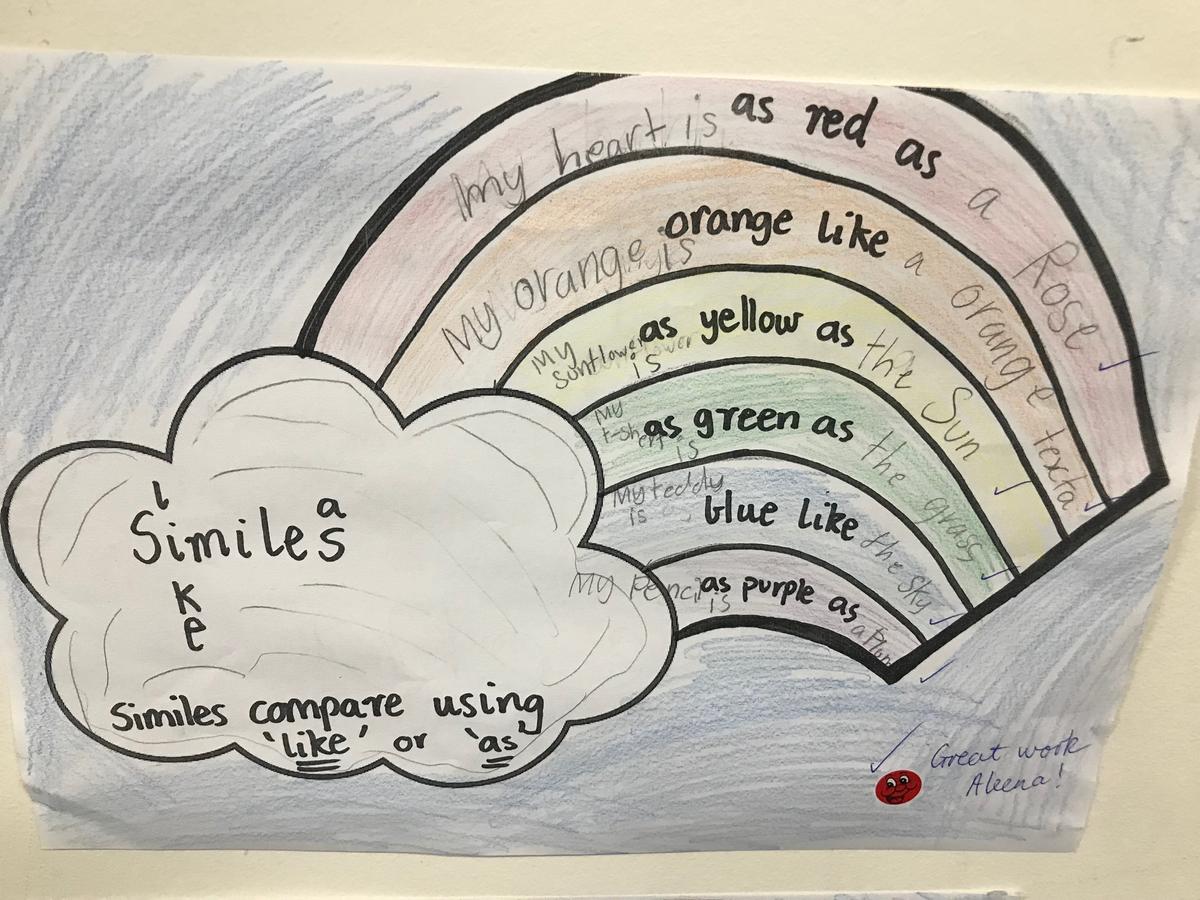 My heart is as red as a Rose
My orange is orange like a orange texta
My sunflower is as yellow as the Sun
My t-shirt is as green as the grass
My teddy is blue like the Sky
My pencil is as purple as a Plum
l
Similes a
k
e
Similes compare using
'like' or 'as'
Great work
Aleena!